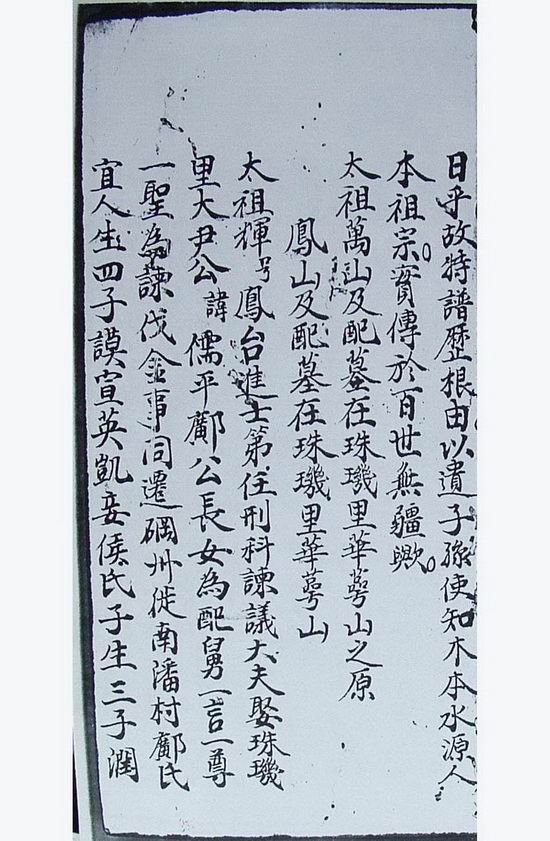 日乎故特譜歷根由以遺子孫使知木本水源人
本祖宗實傳於百世無疆歟
太祖萬山及配墓在珠璣里華萼山之原
鳳山及配墓在珠璣里華萼山
太祖輝号鳳台進士第任刑科諫議大夫娶珠璣
里大尹公諱儒平鄺公長女為配舅一言一尊
一聖為諫伐金事同遷碙州徙南潘村鄺氏
宜人生四子謨宣英凱妾侯氏子生三子潤